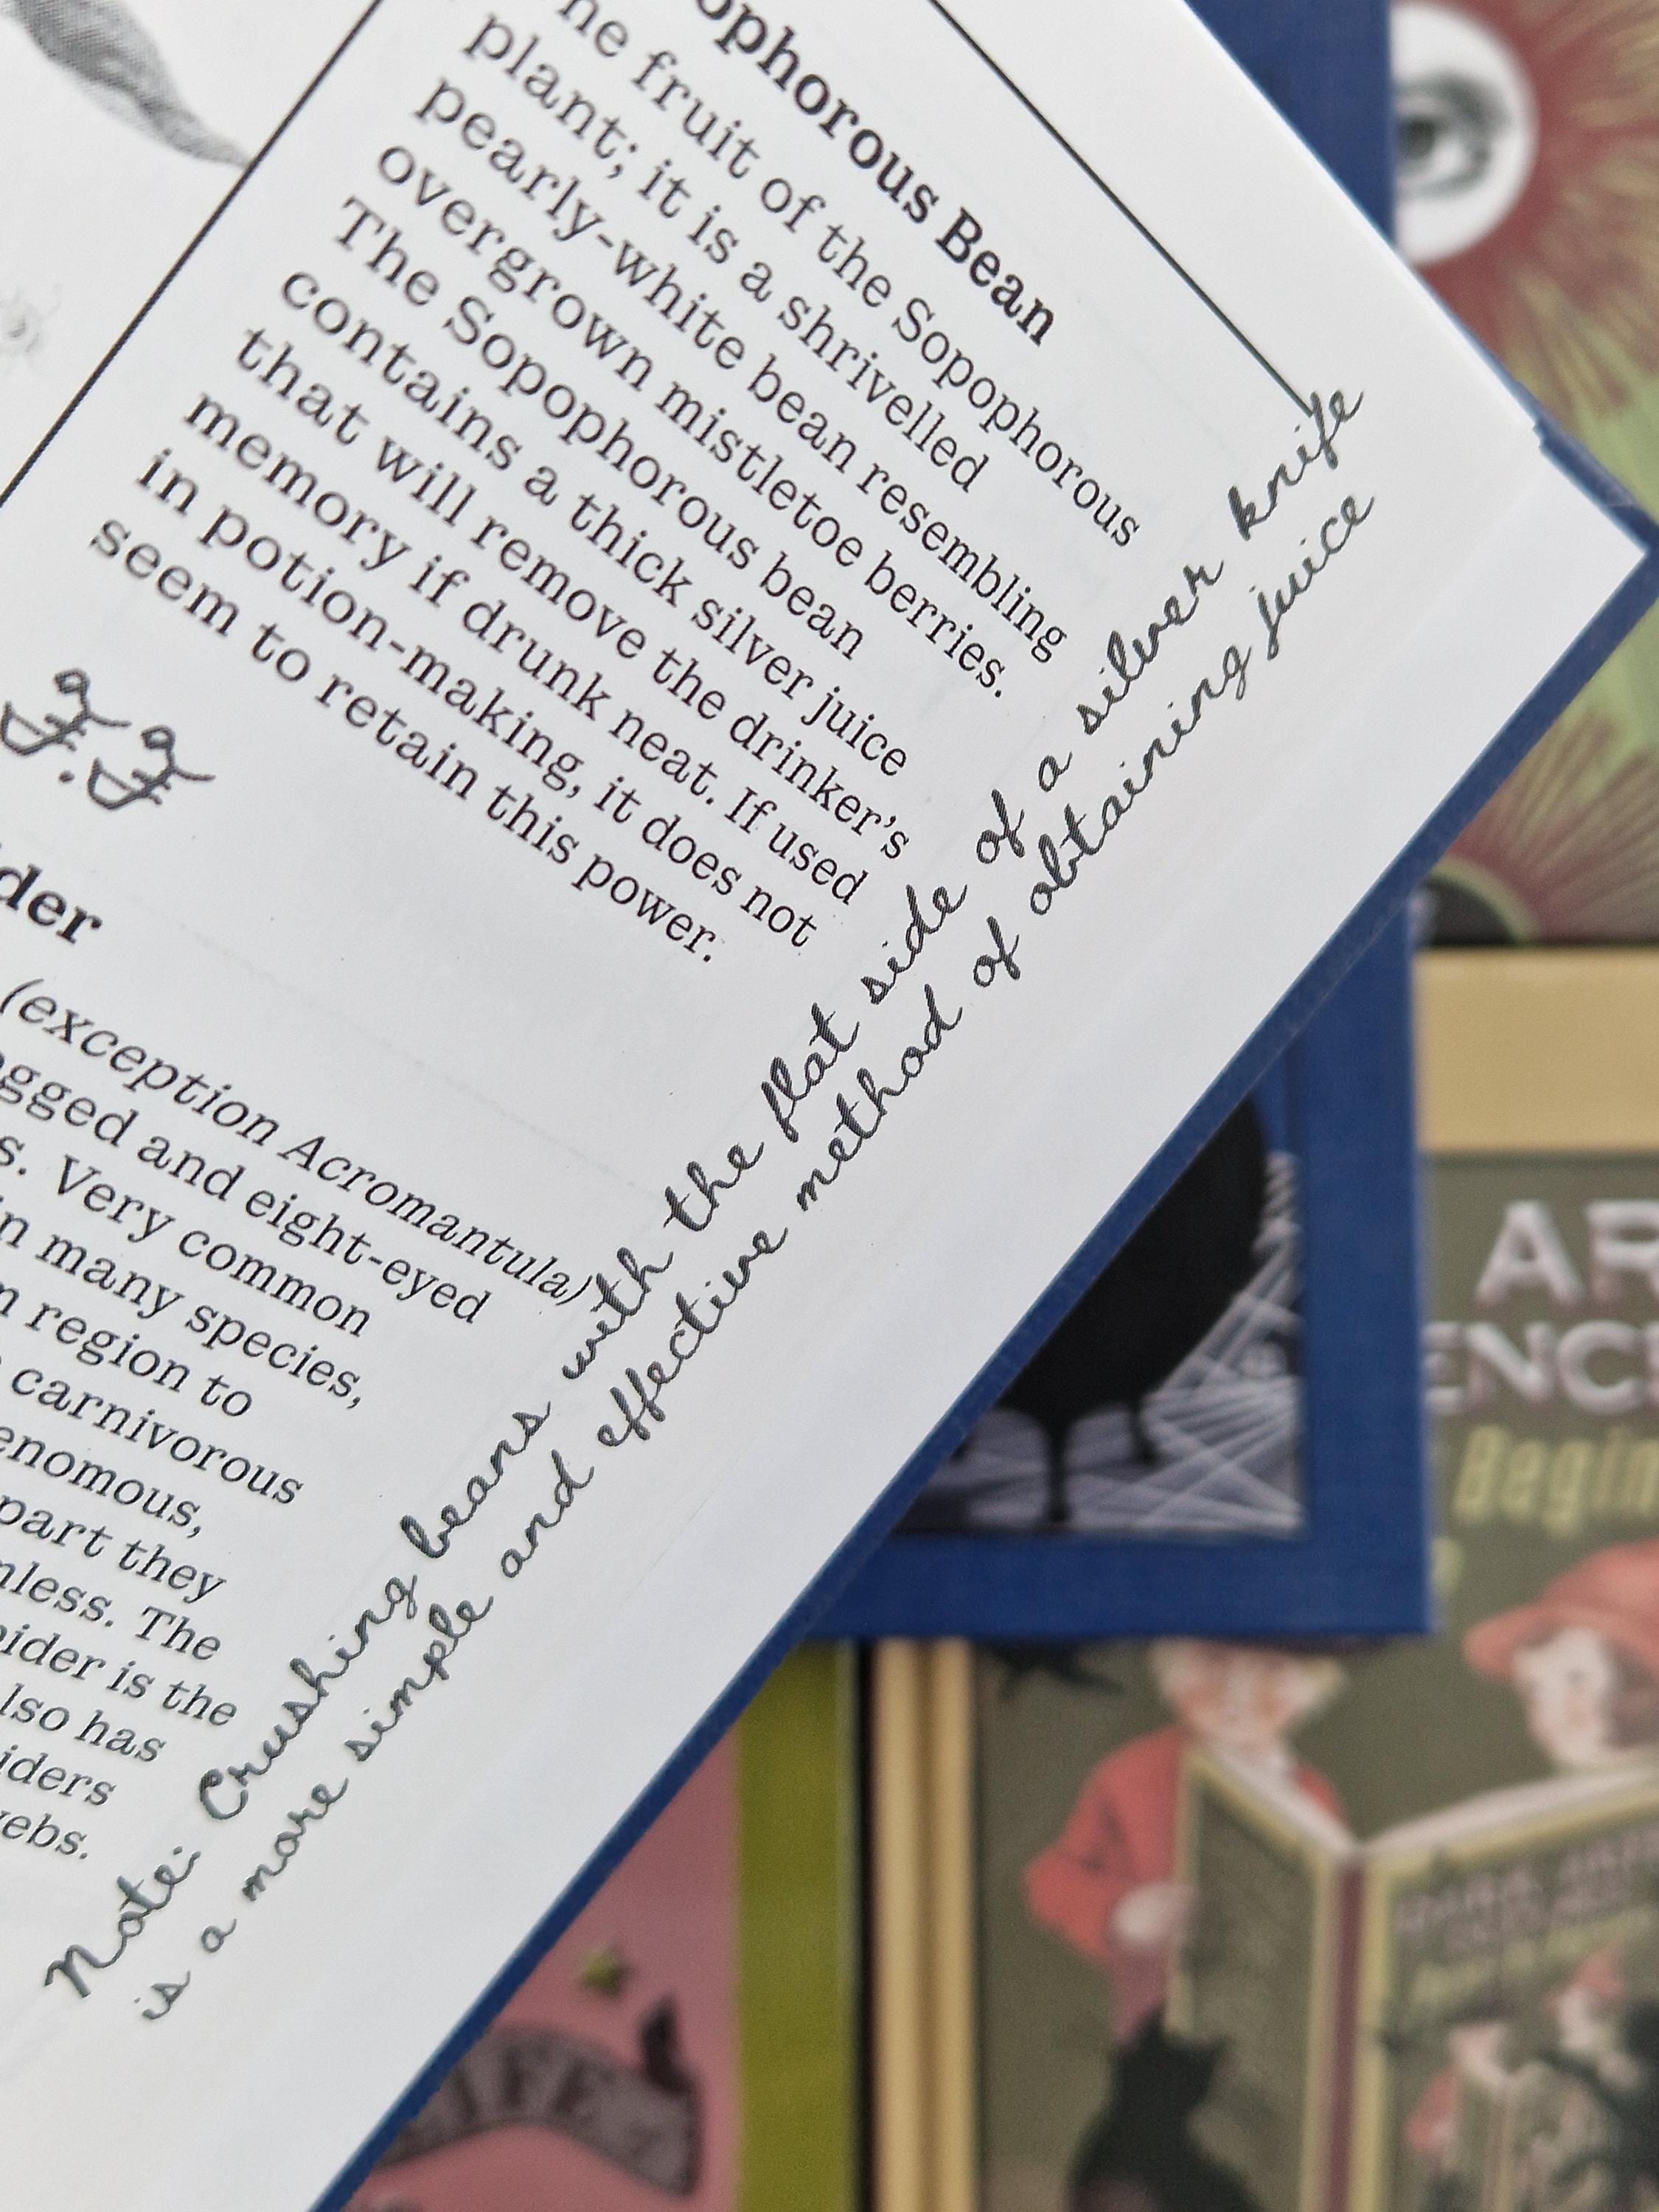 Bean
fruit of the Sopophorous
plant; it is a shrivelled
pearly-white bean resembling
overgrown mistletoe berries.
The Sopophorous bean
contains a thick silver juice
that will remove the drinker's
memory if drunk neat. If used
in potion-making, it does not
seem to retain this power.
(exception Acromantula)
and eight-eyed
Very common
many species,
region to
carnivorous
part they
The
is the
has
Note: Crushing beans with the flat side of a silver knife
is a more simple and effective method of obtaining juice
Begin